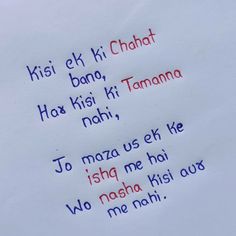 Kisi ek ki Chahat
bano,
Har kisi ki Tamanna
nahi,
Jo maza us ek ke
ishq me hai
Wo nasha kisi aur
me nahi.